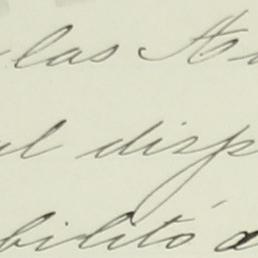 las
al disp
bilitó a